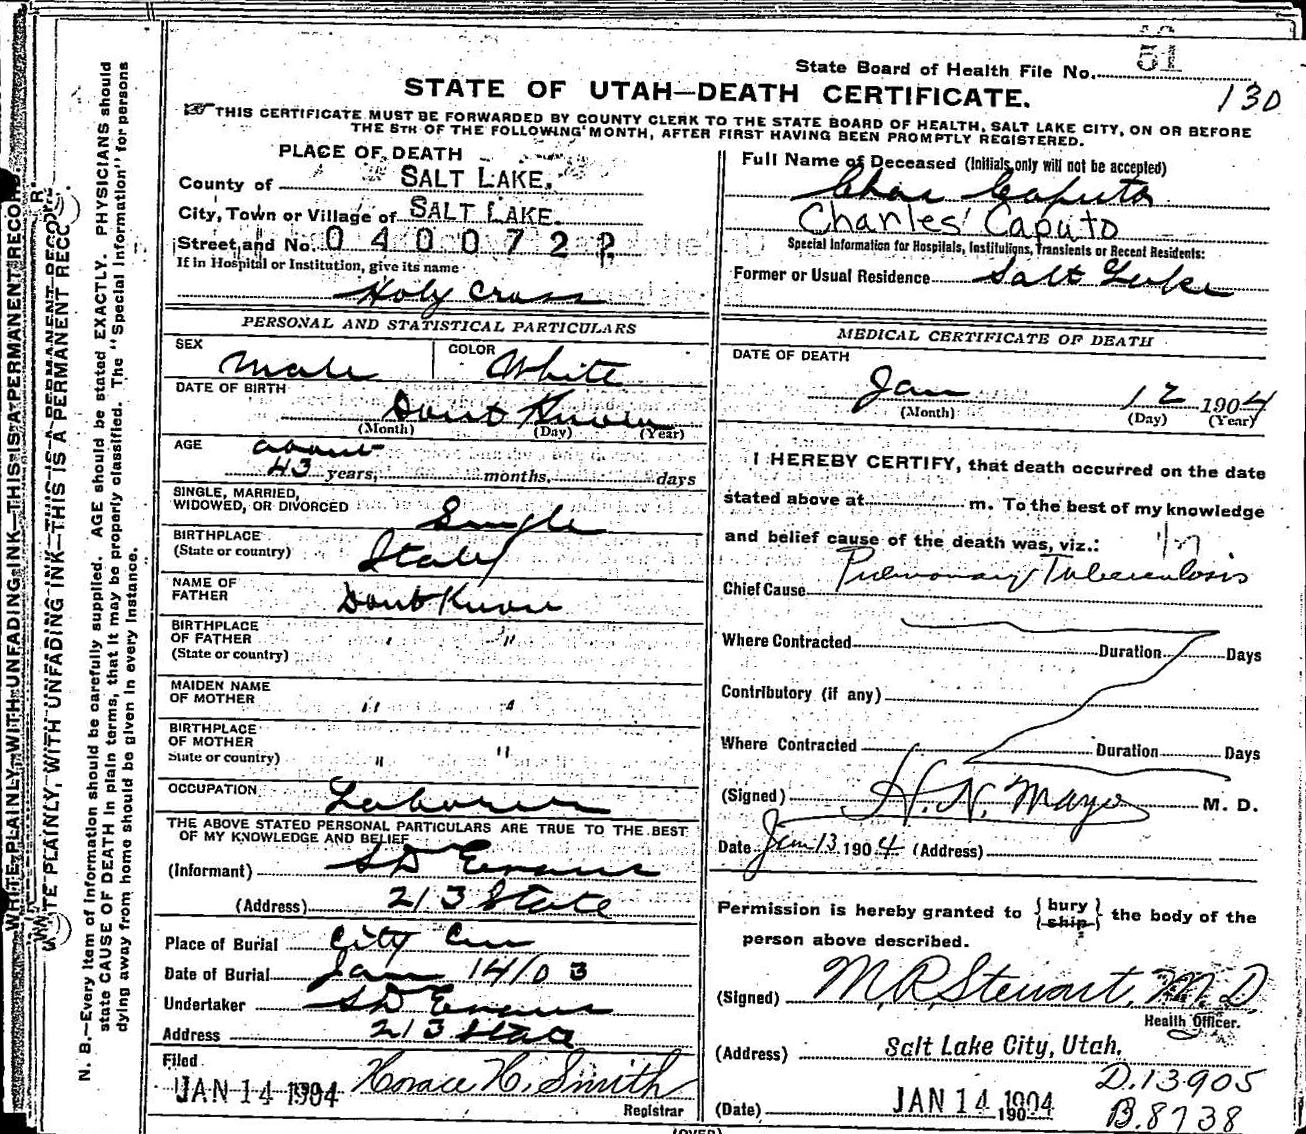 State Board of Health File No. 51
130
STATE OF UTAH—DEATH CERTIFICATE.
THIS CERTIFICATE MUST BE FORWARDED BY COUNTY CLERK TO THE STATE BOARD OF HEALTH, SALT LAKE CITY, ON OR BEFORE
THE 5TH OF THE FOLLOWING MONTH, AFTER FIRST HAVING BEEN PROMPTLY REGISTERED.
PLACE OF DEATH
County of SALT LAKE.
City, Town or Village of SALT LAKE.
Street and No. 0400722
If in Hospital or Institution, give its name
Holy Cross
PERSONAL AND STATISTICAL PARTICULARS
SEX Male COLOR White
DATE OF BIRTH
Dont Know
(Month) (Day) (Year)
AGE about
43 years, months, days
SINGLE, MARRIED,
WIDOWED, OR DIVORCED Single
BIRTHPLACE
(State or country) Italy
NAME OF
FATHER Dont Know
BIRTHPLACE
OF FATHER " "
(State or country)
MAIDEN NAME
OF MOTHER " "
BIRTHPLACE
OF MOTHER
State or country) " "
OCCUPATION Laborer
THE ABOVE STATED PERSONAL PARTICULARS ARE TRUE TO THE BEST
OF MY KNOWLEDGE AND BELIEF
(Informant) SD Evans
(Address) 213 State
Place of Burial City Cem
Date of Burial Jan 14/03
Undertaker SD Evans
Address 213 State
Filed
JAN 14 1904 Horace H. Smith
Registrar
Full Name of Deceased (Initials only will not be accepted)
Chas Caputo
Charles Caputo
Special Information for Hospitals, Institutions, Transients or Recent Residents:
Former or Usual Residence Salt Lake
MEDICAL CERTIFICATE OF DEATH
DATE OF DEATH
Jan 12 1904
(Month) (Day) (Year)
I HEREBY CERTIFY, that death occurred on the date
stated above at m. To the best of my knowledge
and belief cause of the death was, viz.:
Chief Cause Pulmonary Tuberculosis
Where Contracted Duration Days
Contributory (if any)
Where Contracted Duration Days
(Signed) H. N. Mayo M. D.
Date Jan 13 1904 (Address)
Permission is hereby granted to {bury / ship} the body of the
person above described.
(Signed) M R Stewart, M D
Health Officer.
(Address) Salt Lake City, Utah.
D.13905
(Date) JAN 14 1904 190
B.8738
(OVER)
N. B.—Every item of information should be carefully supplied. AGE should be stated EXACTLY. PHYSICIANS should
state CAUSE OF DEATH in plain terms, that it may be properly classified. The "Special Information" for persons
dying away from home should be given in every instance.
WRITE PLAINLY, WITH UNFADING INK—THIS IS A PERMANENT RECO
WRITE PLAINLY, WITH UNFADING INK—THIS IS A PERMANENT RECO